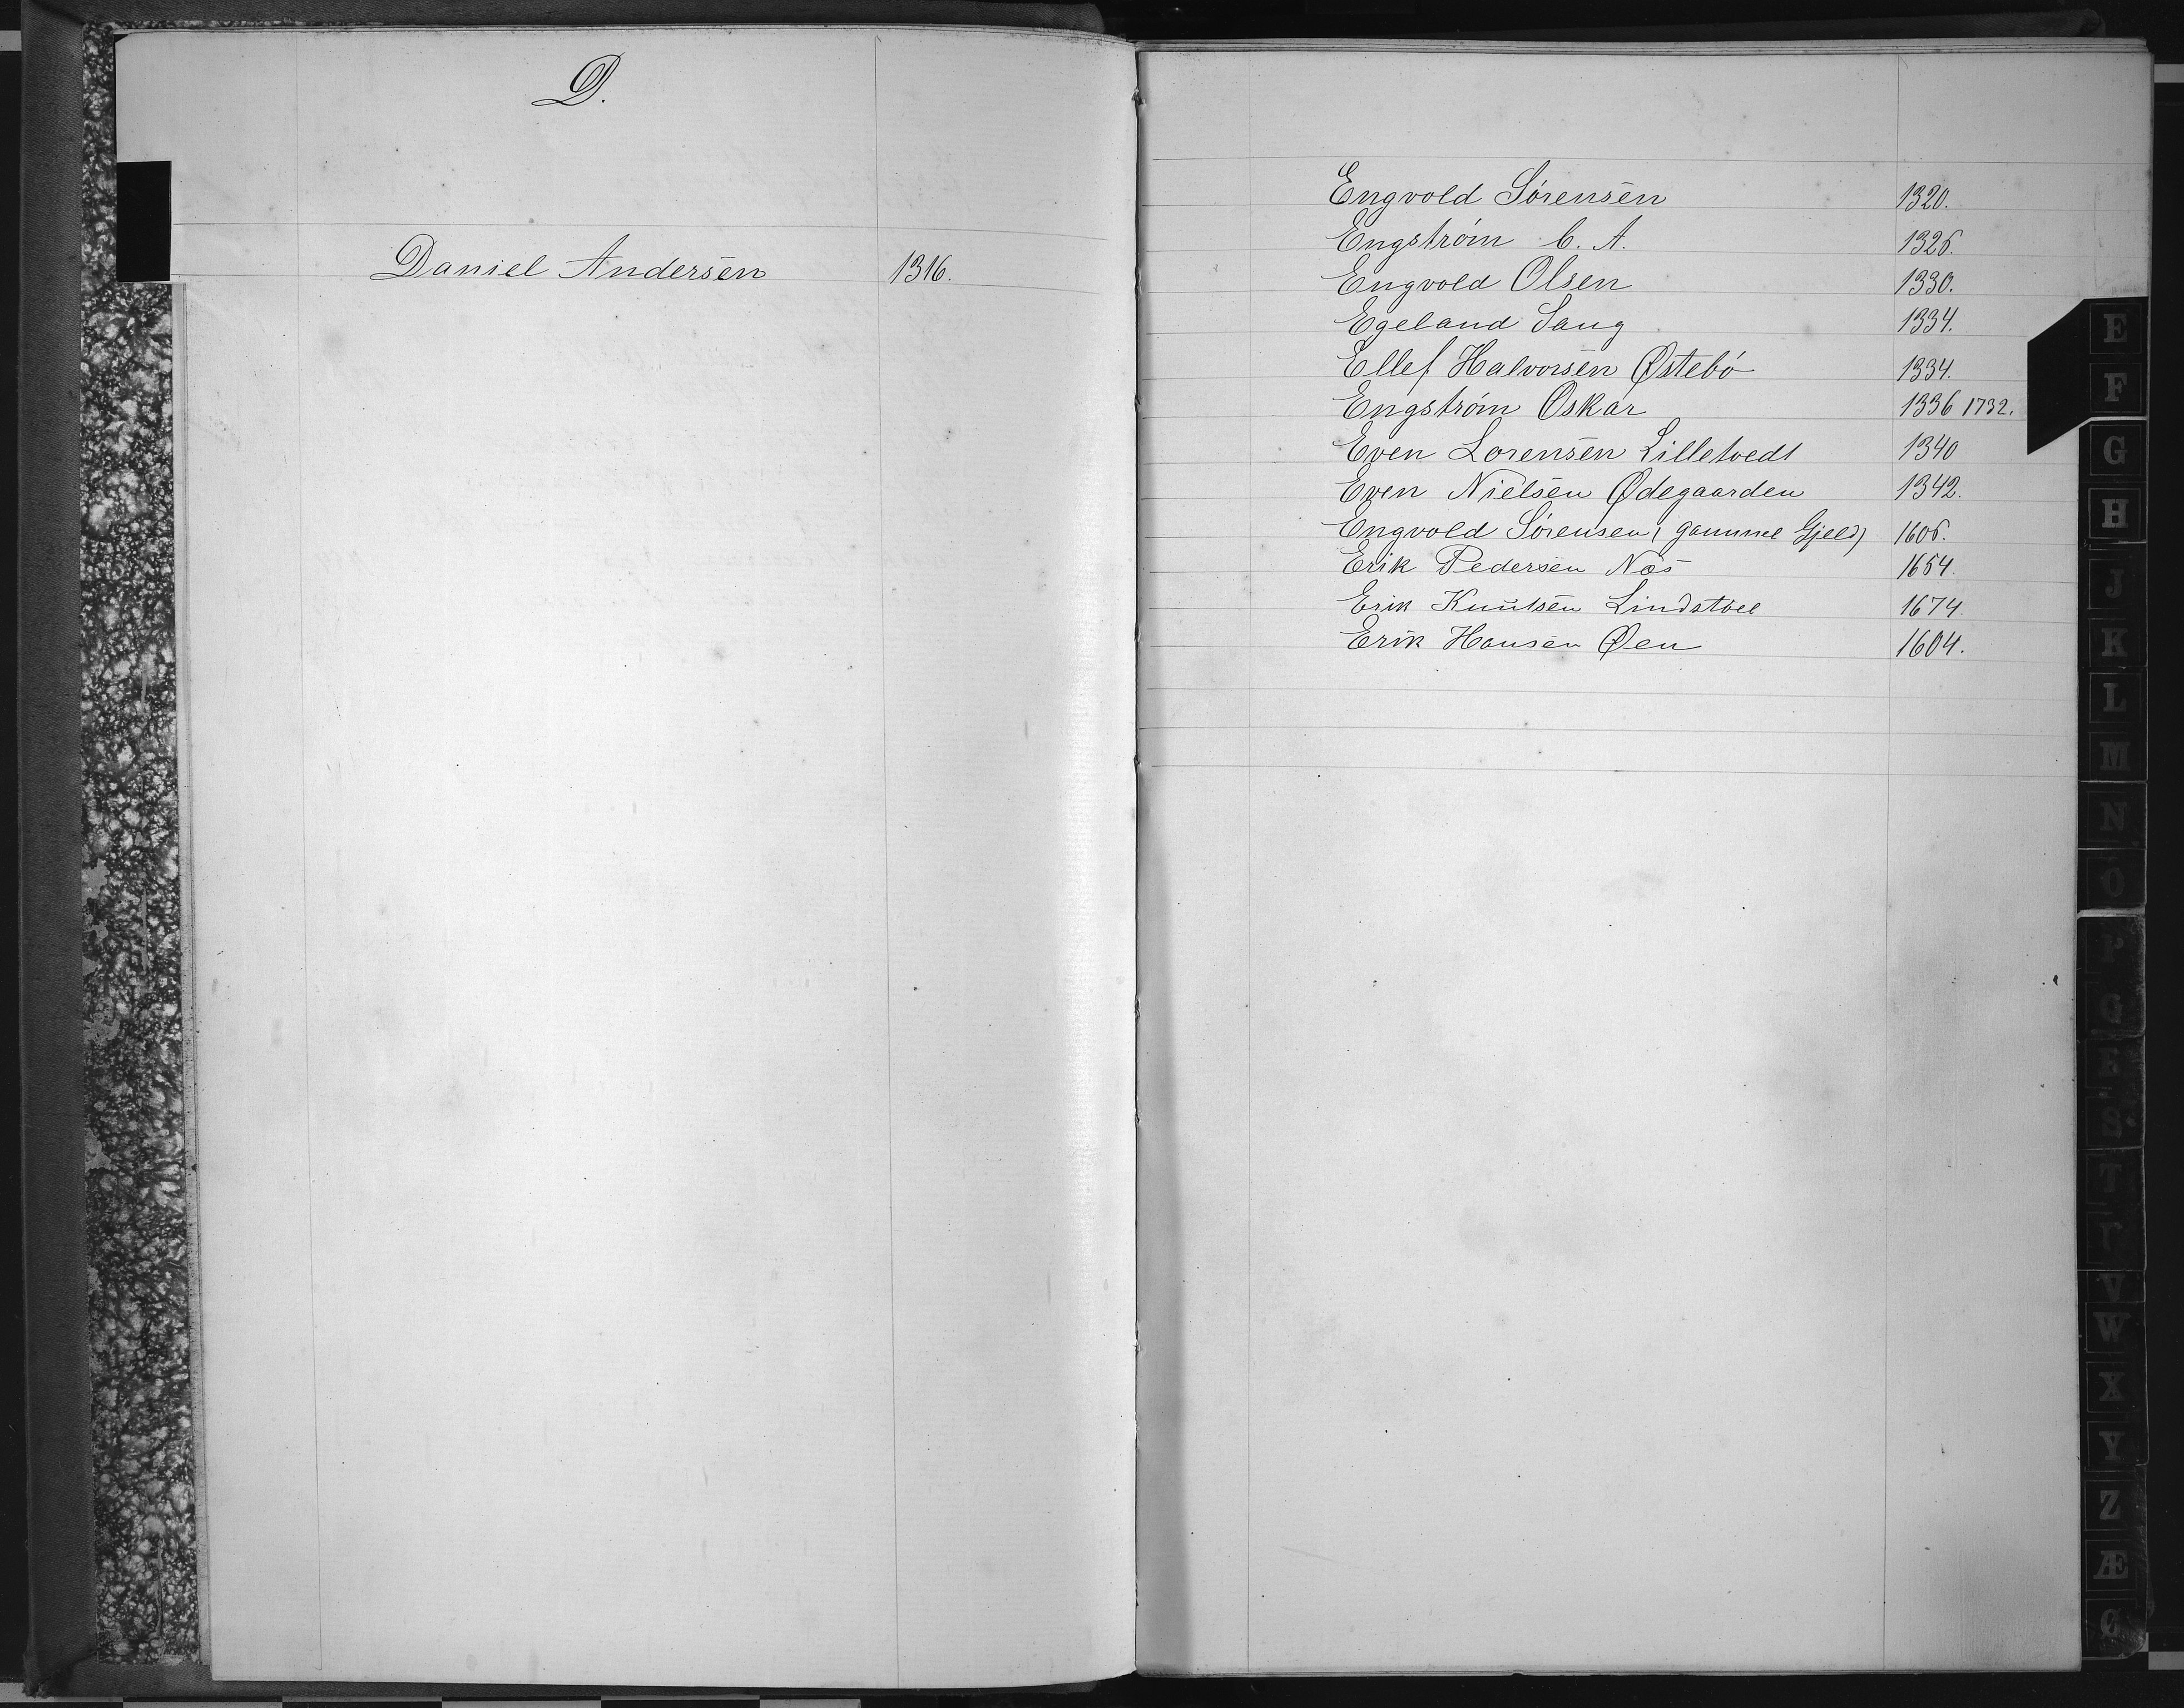 D.
Daniel Andersen 1316.
Engvold Sörensen 1320.
Engström C. A. 1326.
Engvold Olsen 1330.
Egeland Saug 1334.
Ellef Halvorsen Østebö 1334.
Engström Oskar 1336 1732.
Even Lorensen Lilletvedt 1340
Even Nielsen Ødegaarden 1342.
Engvold Sörensen (gammel Gjeld) 1606.
Erik Pedersen Næs 1654.
Erik Knutsen Lindstöl 1674.
Erik Hansen Øen 1604.
E
F
G
H
J
K
L
M
N
O
P
Q
R
S
T
V
W
X
Y
Z
Æ
Ø